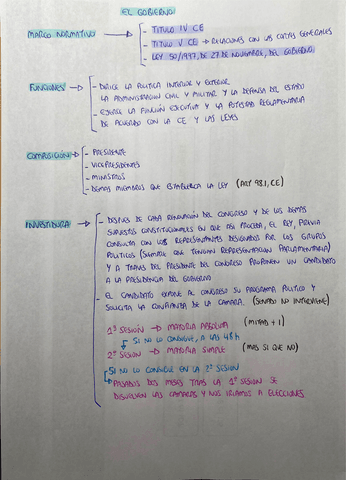 EL GOBIERNO
MARCO NORMATIVO → - TITULO IV CE
- TITULO V CE → RELACIONES CON LAS CORTES GENERALES
- LEY 50/1997, DE 27 DE NOVIEMBRE, DEL GOBIERNO
FUNCIONES → - DIRIGE LA POLITICA INTERIOR Y EXTERIOR
LA ADMINISTRACION CIVIL Y MILITAR Y LA DEFENSA DEL ESTADO
- EJERCE LA FUNCIÓN EJECUTIVA Y LA POTESTAD REGLAMENTARIA
DE ACUERDO CON LA CE Y LAS LEYES
COMPOSICIÓN → - PRESIDENTE
- VICEPRESIDENTES
- MINISTROS
- DEMAS MIEMBROS QUE ESTABLEZCA LA LEY (ART 98.1, CE)
INVESTIDURA → - DESPUES DE CADA RENOVACIÓN DEL CONGRESO Y DE LOS DEMAS
SUPUESTOS CONSTITUCIONALES EN QUE ASI PROCEDA, EL REY, PREVIA
CONSULTA CON LOS REPRESENTANTES DESIGNADOS POR LOS GRUPOS
POLITICOS (SIEMPRE QUE TENGAN REPRESENTACION PARLAMENTARIA)
Y A TRAVES DEL PRESIDENTE DEL CONGRESO PROPONEN UN CANDIDATO
A LA PRESIDENCIA DEL GOBIERNO
- EL CANDIDATO EXPONE AL CONGRESO SU PROGRAMA POLITICO Y
SOLICITA LA CONFIANZA DE LA CAMARA. (SENADO NO INTERVIENE)
1ª SESIÓN → MAYORIA ABSOLUTA (MITAD + 1)
↳ SI NO LO CONSIGUE, A LAS 48h
2ª SESIÓN → MAYORIA SIMPLE (MAS SI QUE NO)
SI NO LO CONSIGUE EN LA 2ª SESION
↳ PASADOS DOS MESES TRAS LA 1ª SESION SE
DISUELVEN LAS CAMARAS Y NOS IRIAMOS A ELECCIONES